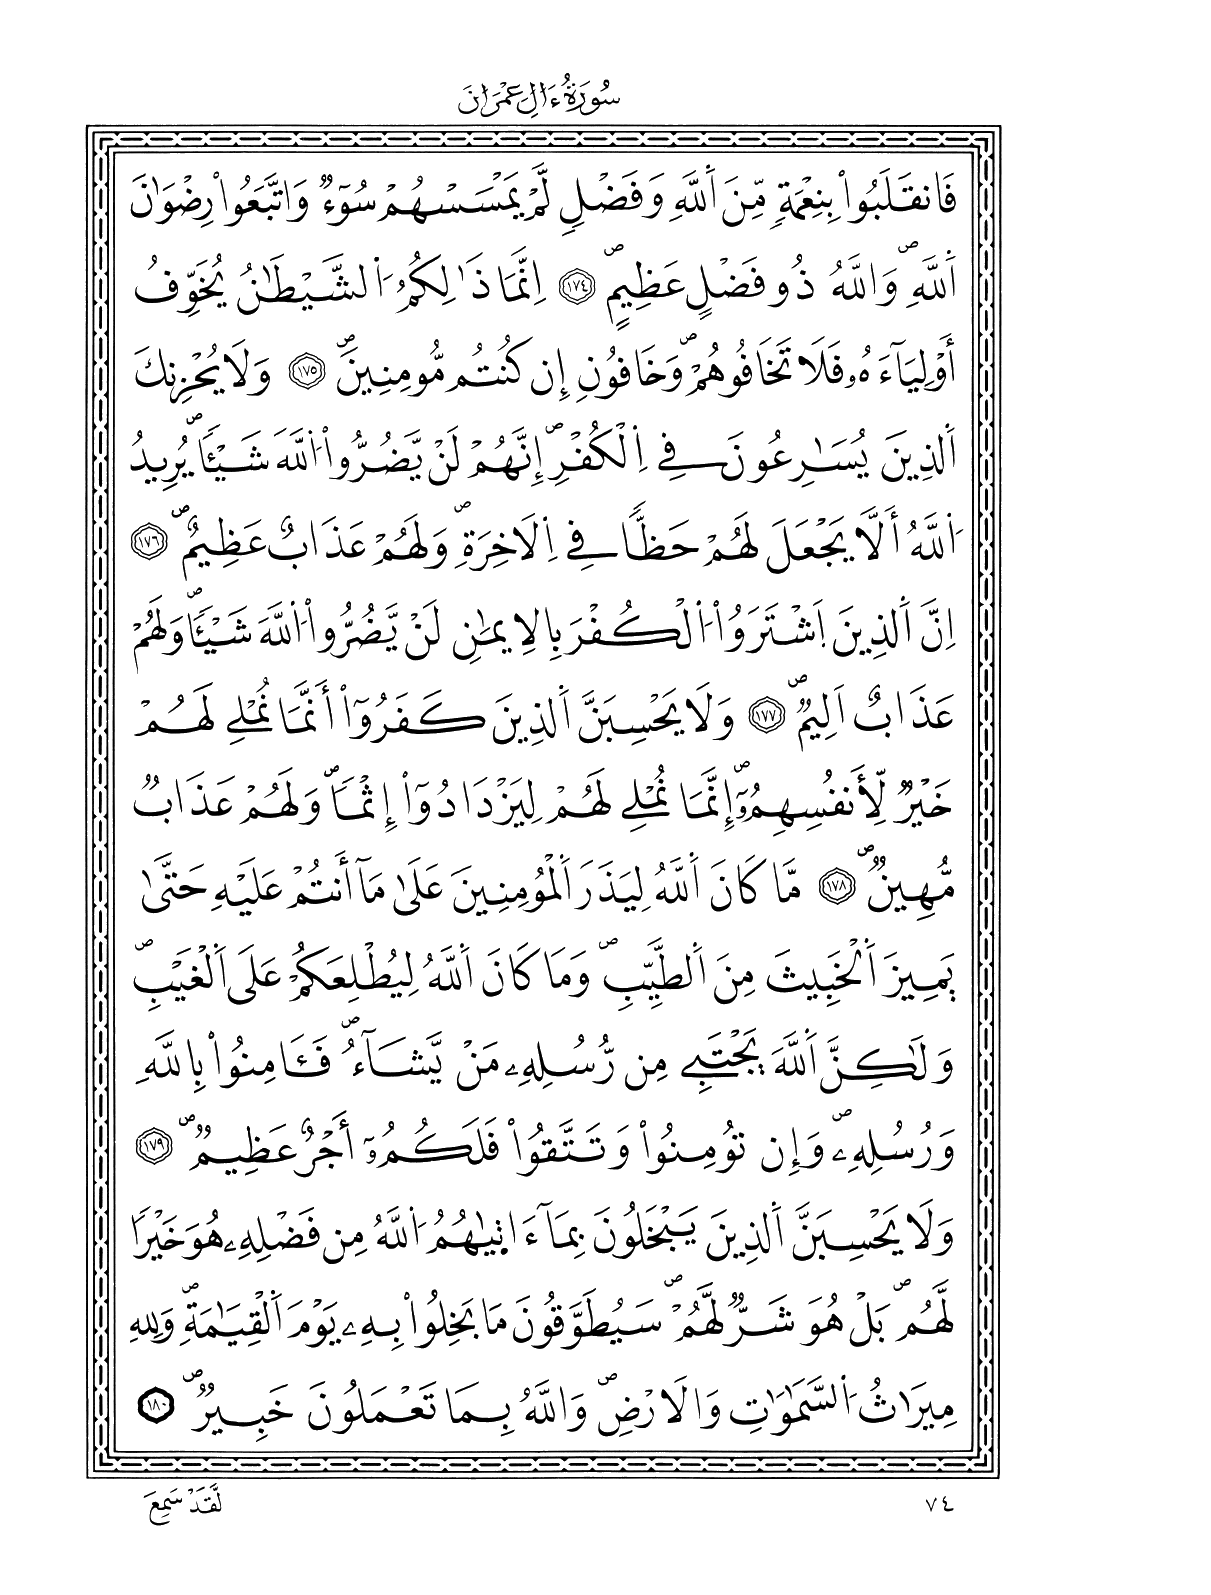 سُورَةُ ءَالِ عِمْرَانَ
فَانقَلَبُواْ بِنِعْمَةٖ مِّنَ اَ۬للَّهِ وَفَضْلٖ لَّمْ يَمْسَسْهُمْ سُوٓءٞ وَاتَّبَعُواْ رِضْوَٰنَ
اَ۬للَّهِۖ وَاللَّهُ ذُو فَضْلٍ عَظِيمٍۖ ١٧٤ اِنَّمَا ذَٰلِكُمُ اُ۬لشَّيْطَٰنُ يُخَوِّفُ
أَوْلِيَآءَهُۥ فَلَا تَخَافُوهُمْۖ وَخَافُونِ إِن كُنتُم مُّومِنِينَۖ ١٧٥ وَلَا يُحْزِنكَ
اَ۬لذِينَ يُسَٰرِعُونَ فِے اِ۬لْكُفْرِۖ إِنَّهُمْ لَنْ يَّضُرُّواْ اُ۬للَّهَ شَيْـٔاٗۖ يُرِيدُ
اُ۬للَّهُ أَلَّا يَجْعَلَ لَهُمْ حَظّاٗ فِے اِ۬لَاخِرَةِۖ وَلَهُمْ عَذَابٌ عَظِيمٌۖ ١٧٦
اِنَّ اَ۬لذِينَ اَ۪شْتَرَوُاْ اُ۬لْكُفْرَ بِالِايمَٰنِ لَنْ يَّضُرُّواْ اُ۬للَّهَ شَيْـٔاٗۖ وَلَهُمْ
عَذَابٌ اَلِيمٌۖ ١٧٧ وَلَا يَحْسِبَنَّ اَ۬لذِينَ كَفَرُوٓاْ أَنَّمَا نُمْلِے لَهُمْ
خَيْرٞ لِّأَنفُسِهِمُۥٓۖ إِنَّمَا نُمْلِے لَهُمْ لِيَزْدَادُوٓاْ إِثْماٗۖ وَلَهُمْ عَذَابٞ
مُّهِينٞۖ ١٧٨ مَّا كَانَ اَ۬للَّهُ لِيَذَرَ اَ۬لْمُومِنِينَ عَلَىٰ مَآ أَنتُمْ عَلَيْهِ حَتَّىٰ
يَمِيزَ اَ۬لْخَبِيثَ مِنَ اَ۬لطَّيِّبِۖ وَمَا كَانَ اَ۬للَّهُ لِيُطْلِعَكُمْ عَلَى اَ۬لْغَيْبِۖ
وَلَٰكِنَّ اَ۬للَّهَ يَجْتَبِے مِن رُّسُلِهِۦ مَنْ يَّشَآءُۖ فَـَٔامِنُواْ بِاللَّهِ
وَرُسُلِهِۦۖ وَإِن تُومِنُواْ وَتَتَّقُواْ فَلَكُمُۥٓ أَجْرٌ عَظِيمٞۖ ١٧٩
وَلَا يَحْسِبَنَّ اَ۬لذِينَ يَبْخَلُونَ بِمَآ ءَاتۭيٰهُمُ اُ۬للَّهُ مِن فَضْلِهِۦ هُوَ خَيْراٗ
لَّهُمْۖ بَلْ هُوَ شَرّٞ لَّهُمْۖ سَيُطَوَّقُونَ مَا بَخِلُواْ بِهِۦ يَوْمَ اَ۬لْقِيَٰمَةِۖ وَلِلهِ
مِيرَٰثُ اُ۬لسَّمَٰوَٰتِ وَالَارْضِۖ وَاللَّهُ بِمَا تَعْمَلُونَ خَبِيرٞۖ ١٨٠
لَّقَدْ سَمِعَ
٧٤